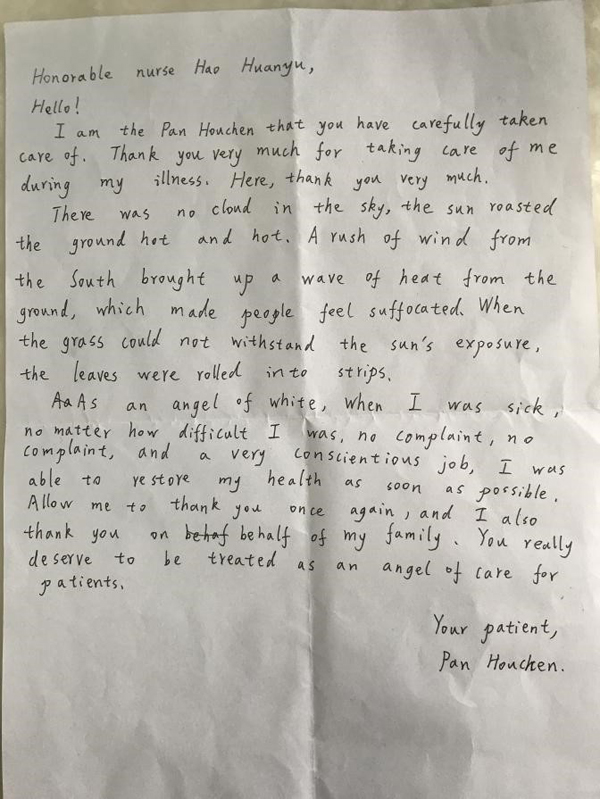 Honorable nurse Hao Huanyu,
Hello!
I am the Pan Houchen that you have carefully taken
care of. Thank you very much for taking care of me
during my illness. Here, thank you very much.
There was no cloud in the sky, the sun roasted
the ground hot and hot. A rush of wind from
the South brought up a wave of heat from the
ground, which made people feel suffocated. When
the grass could not withstand the sun's exposure,
the leaves were rolled into strips.
AaAs an angel of white, when I was sick,
no matter how difficult I was, no complaint, no
complaint, and a very conscientious job, I was
able to restore my health as soon as possible.
Allow me to thank you once again, and I also
thank you on behaf behalf of my family. You really
deserve to be treated as an angel of care for
patients.
Your patient,
Pan Houchen.